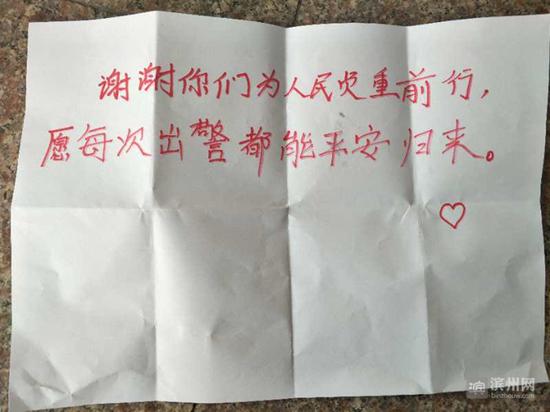 谢谢你们为人民负重前行，
愿每次出警都能平安归来。
♡
滨州网
binzhouw.com